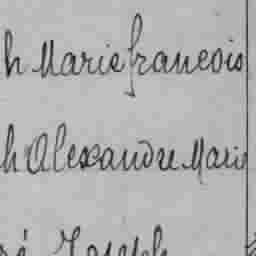 h Marie francois
h Alexandre Marie
ré Joseph